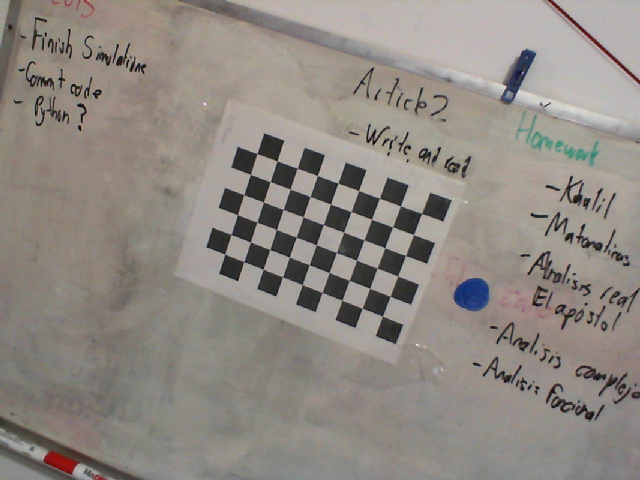 2015
- Finish Simulations
- Commt code
- Python ?
Article 2
- Write and read
Homework
- Khalil
- Matematicas
- Analisis real
El apostol
- Analisis complejo
- Analisis Funcional